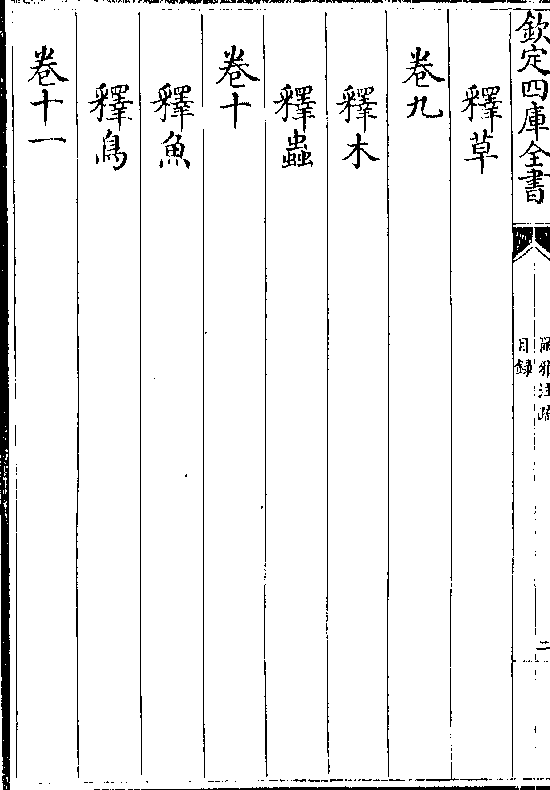 欽定四庫全書
爾雅注疏
目録
二
釋草
卷九
釋木
釋蟲
卷十
釋魚
釋鳥
卷十一